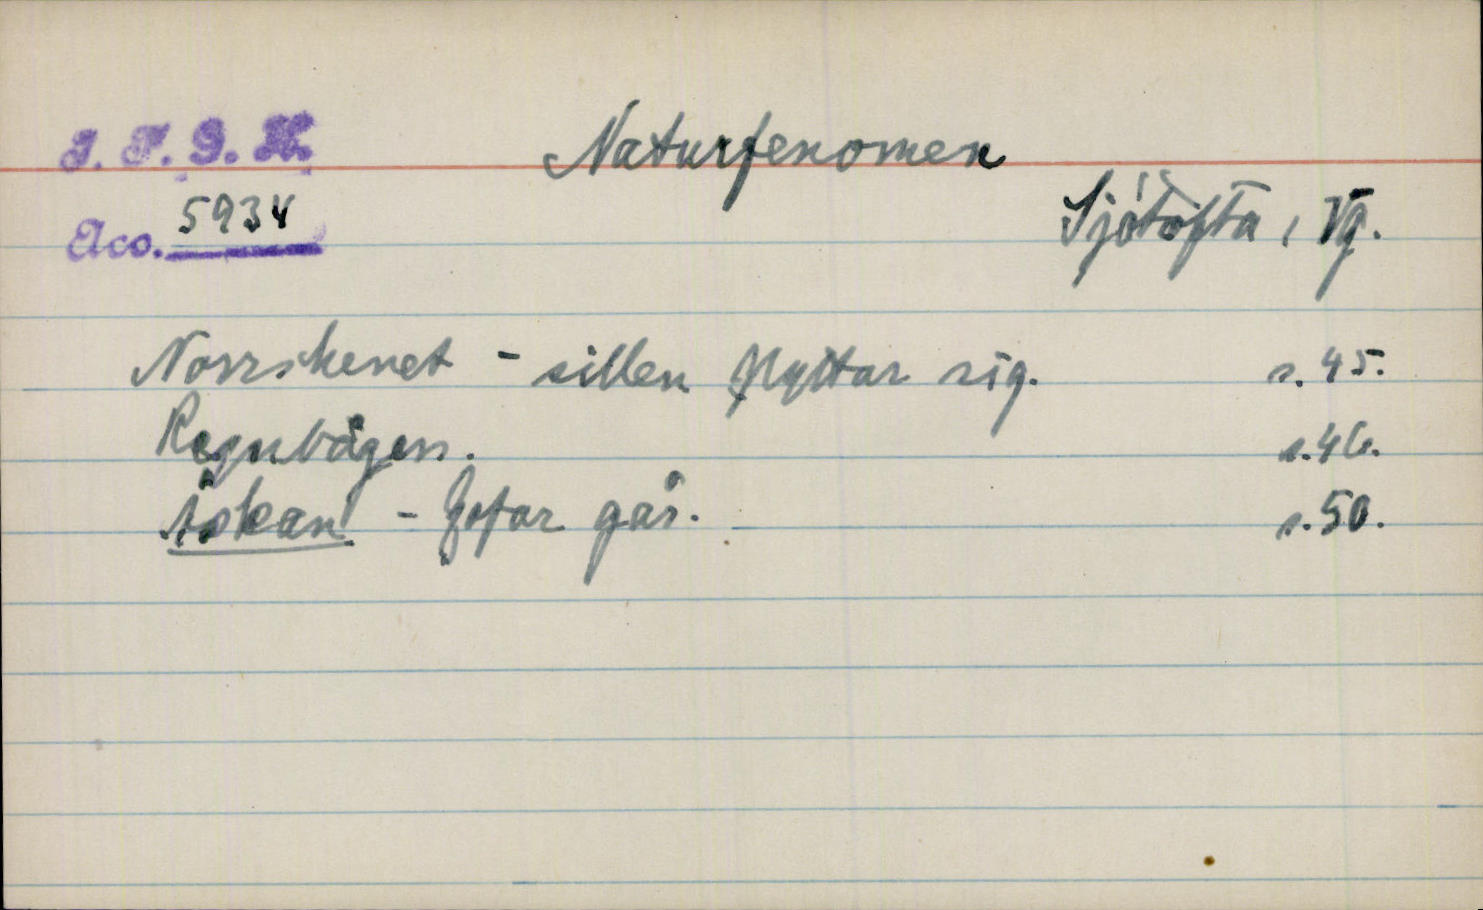 I. F. G. H.
Naturfenomen
Acc. 5934
Sjötofta, Vg.
Norrskenet - sillen flyttar sig. s. 45.
Regnbågen. s. 46.
Åskan - Gofar går. s. 50.